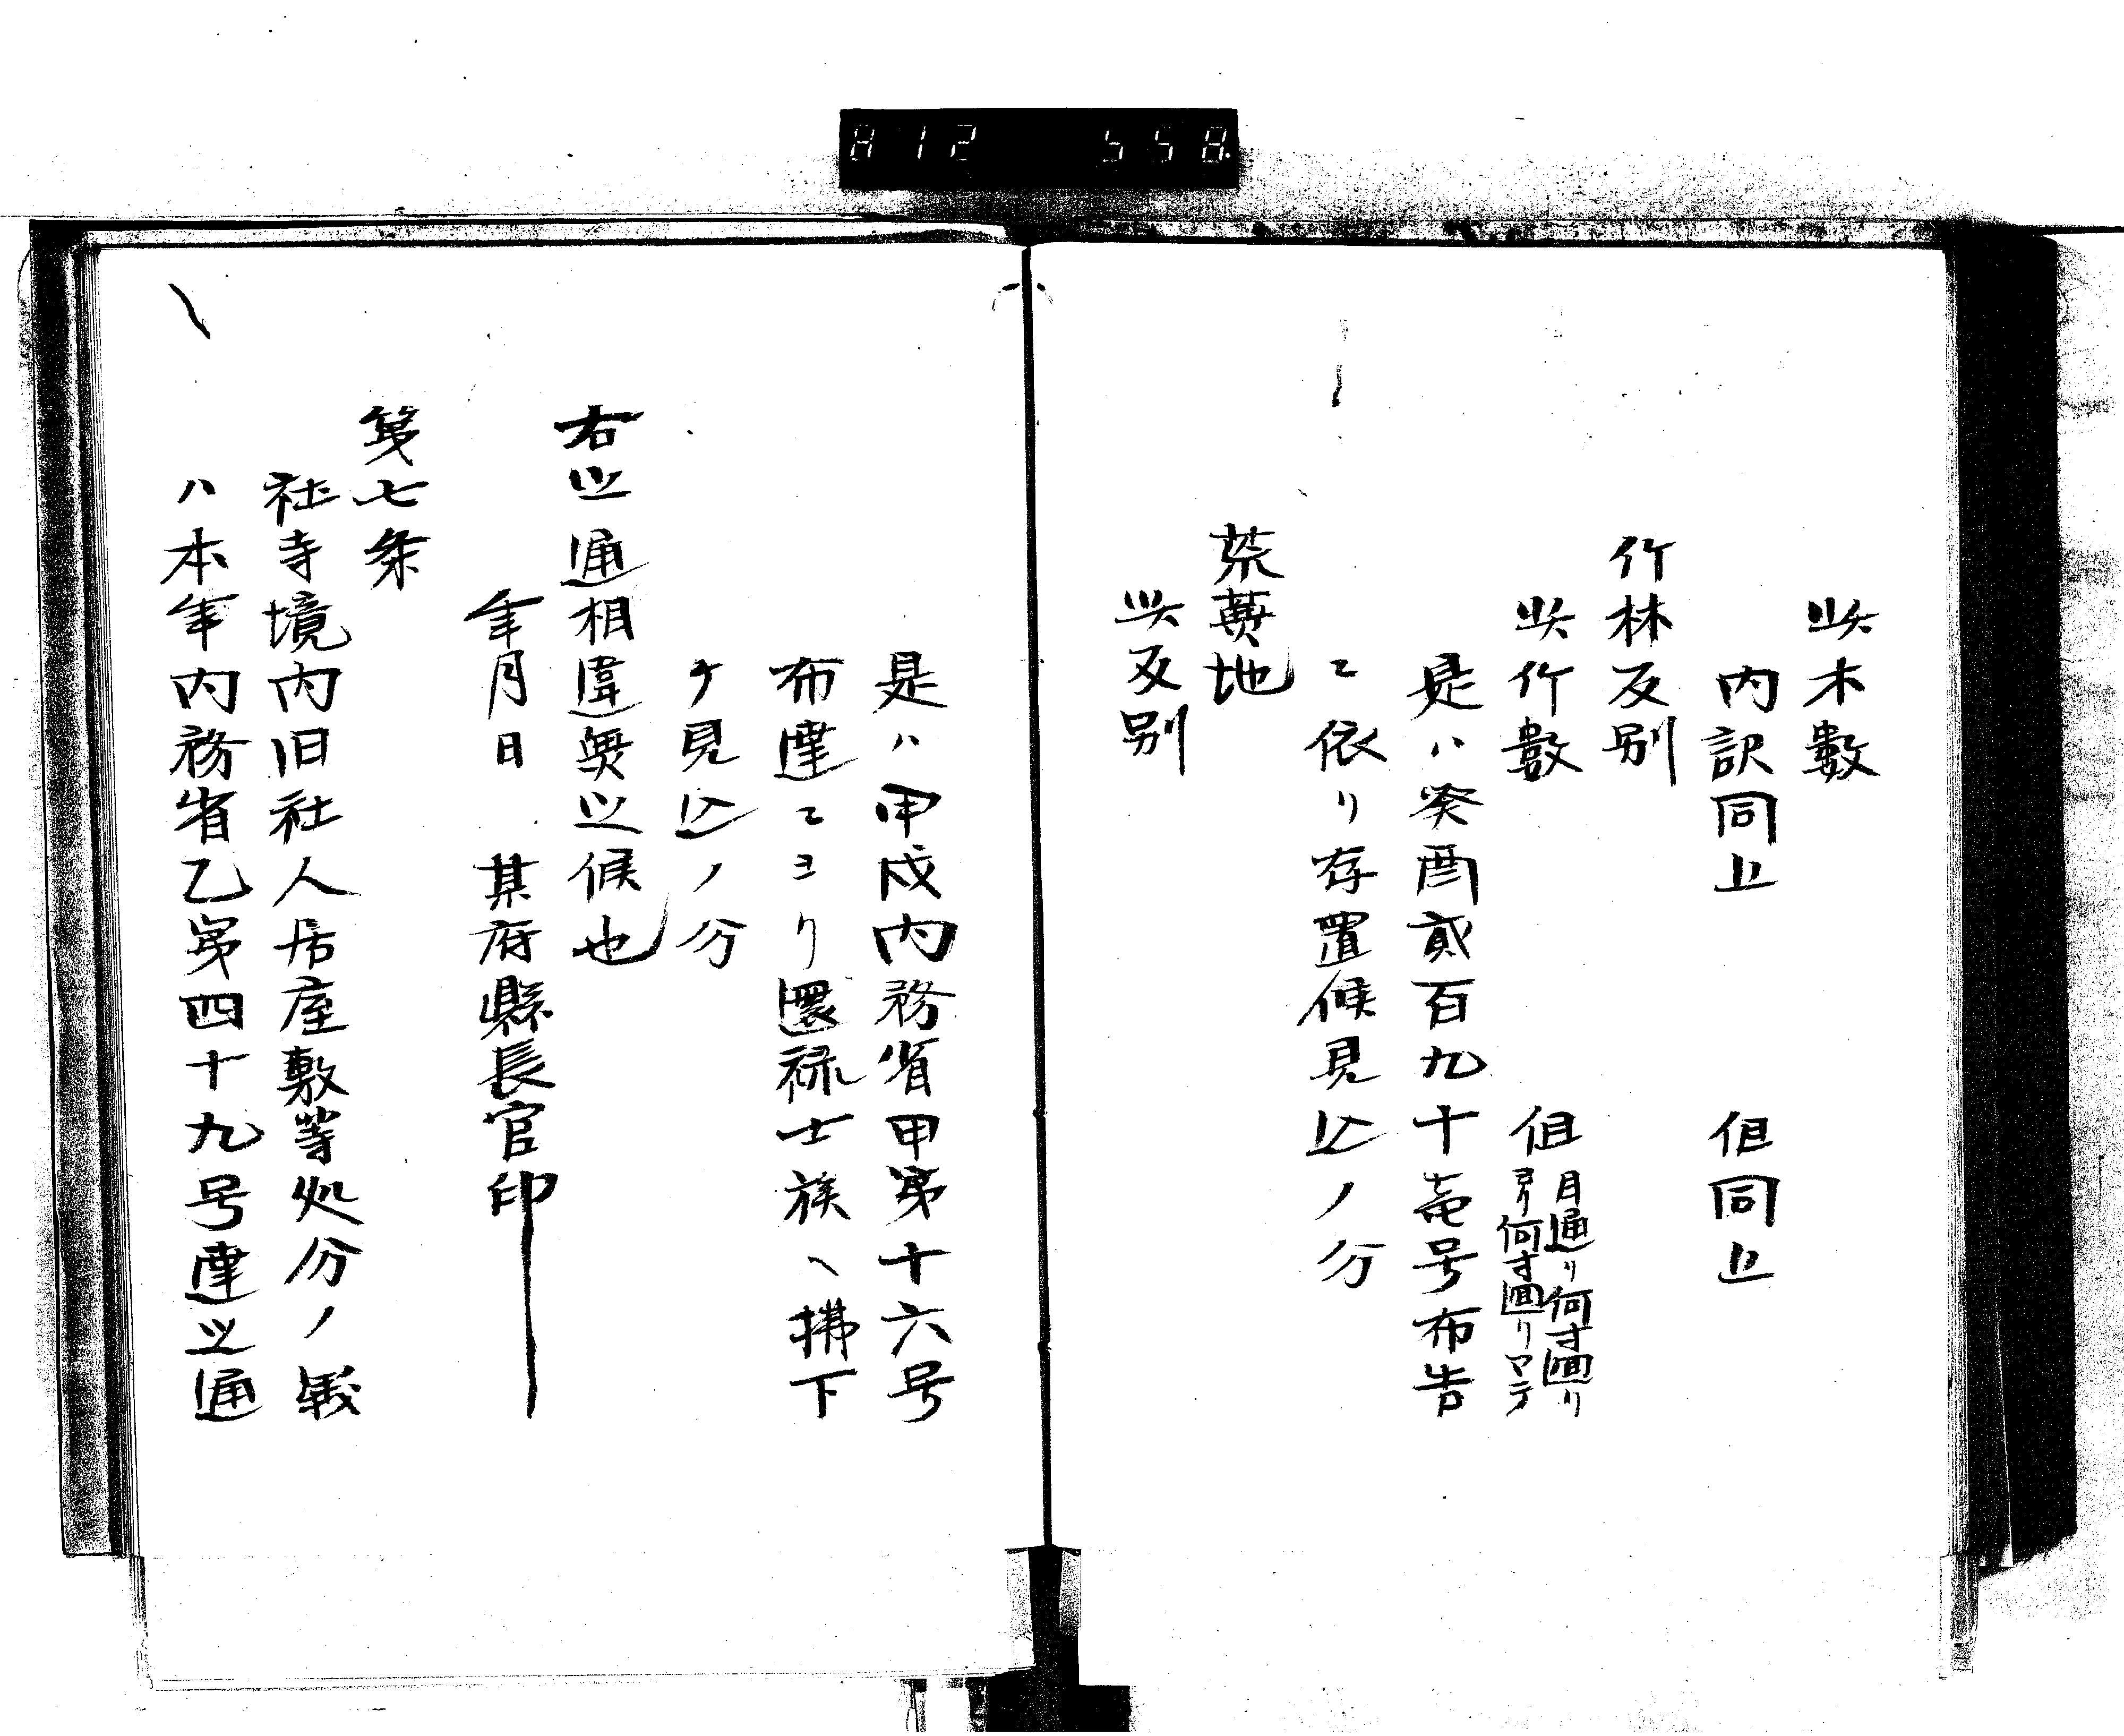 812 558
此木數
内訳同上 但同上
竹林反別
此竹數 但目通リ何寸囬リヨリ何寸囬リマテ
是ハ癸酉貳百九十壱号布告
ニ依リ存置候見込ノ分
荒蕪地
此反別
是ハ甲戌内務省甲第十六号
布達ニヨリ還禄士族ヘ拂下
ケ見込ノ分
右之通相違無之候也
年月日 某府縣長官印
第七条
社寺境内旧社人居屋敷等処分ノ義
ハ本年内務省乙第四十九号達之通